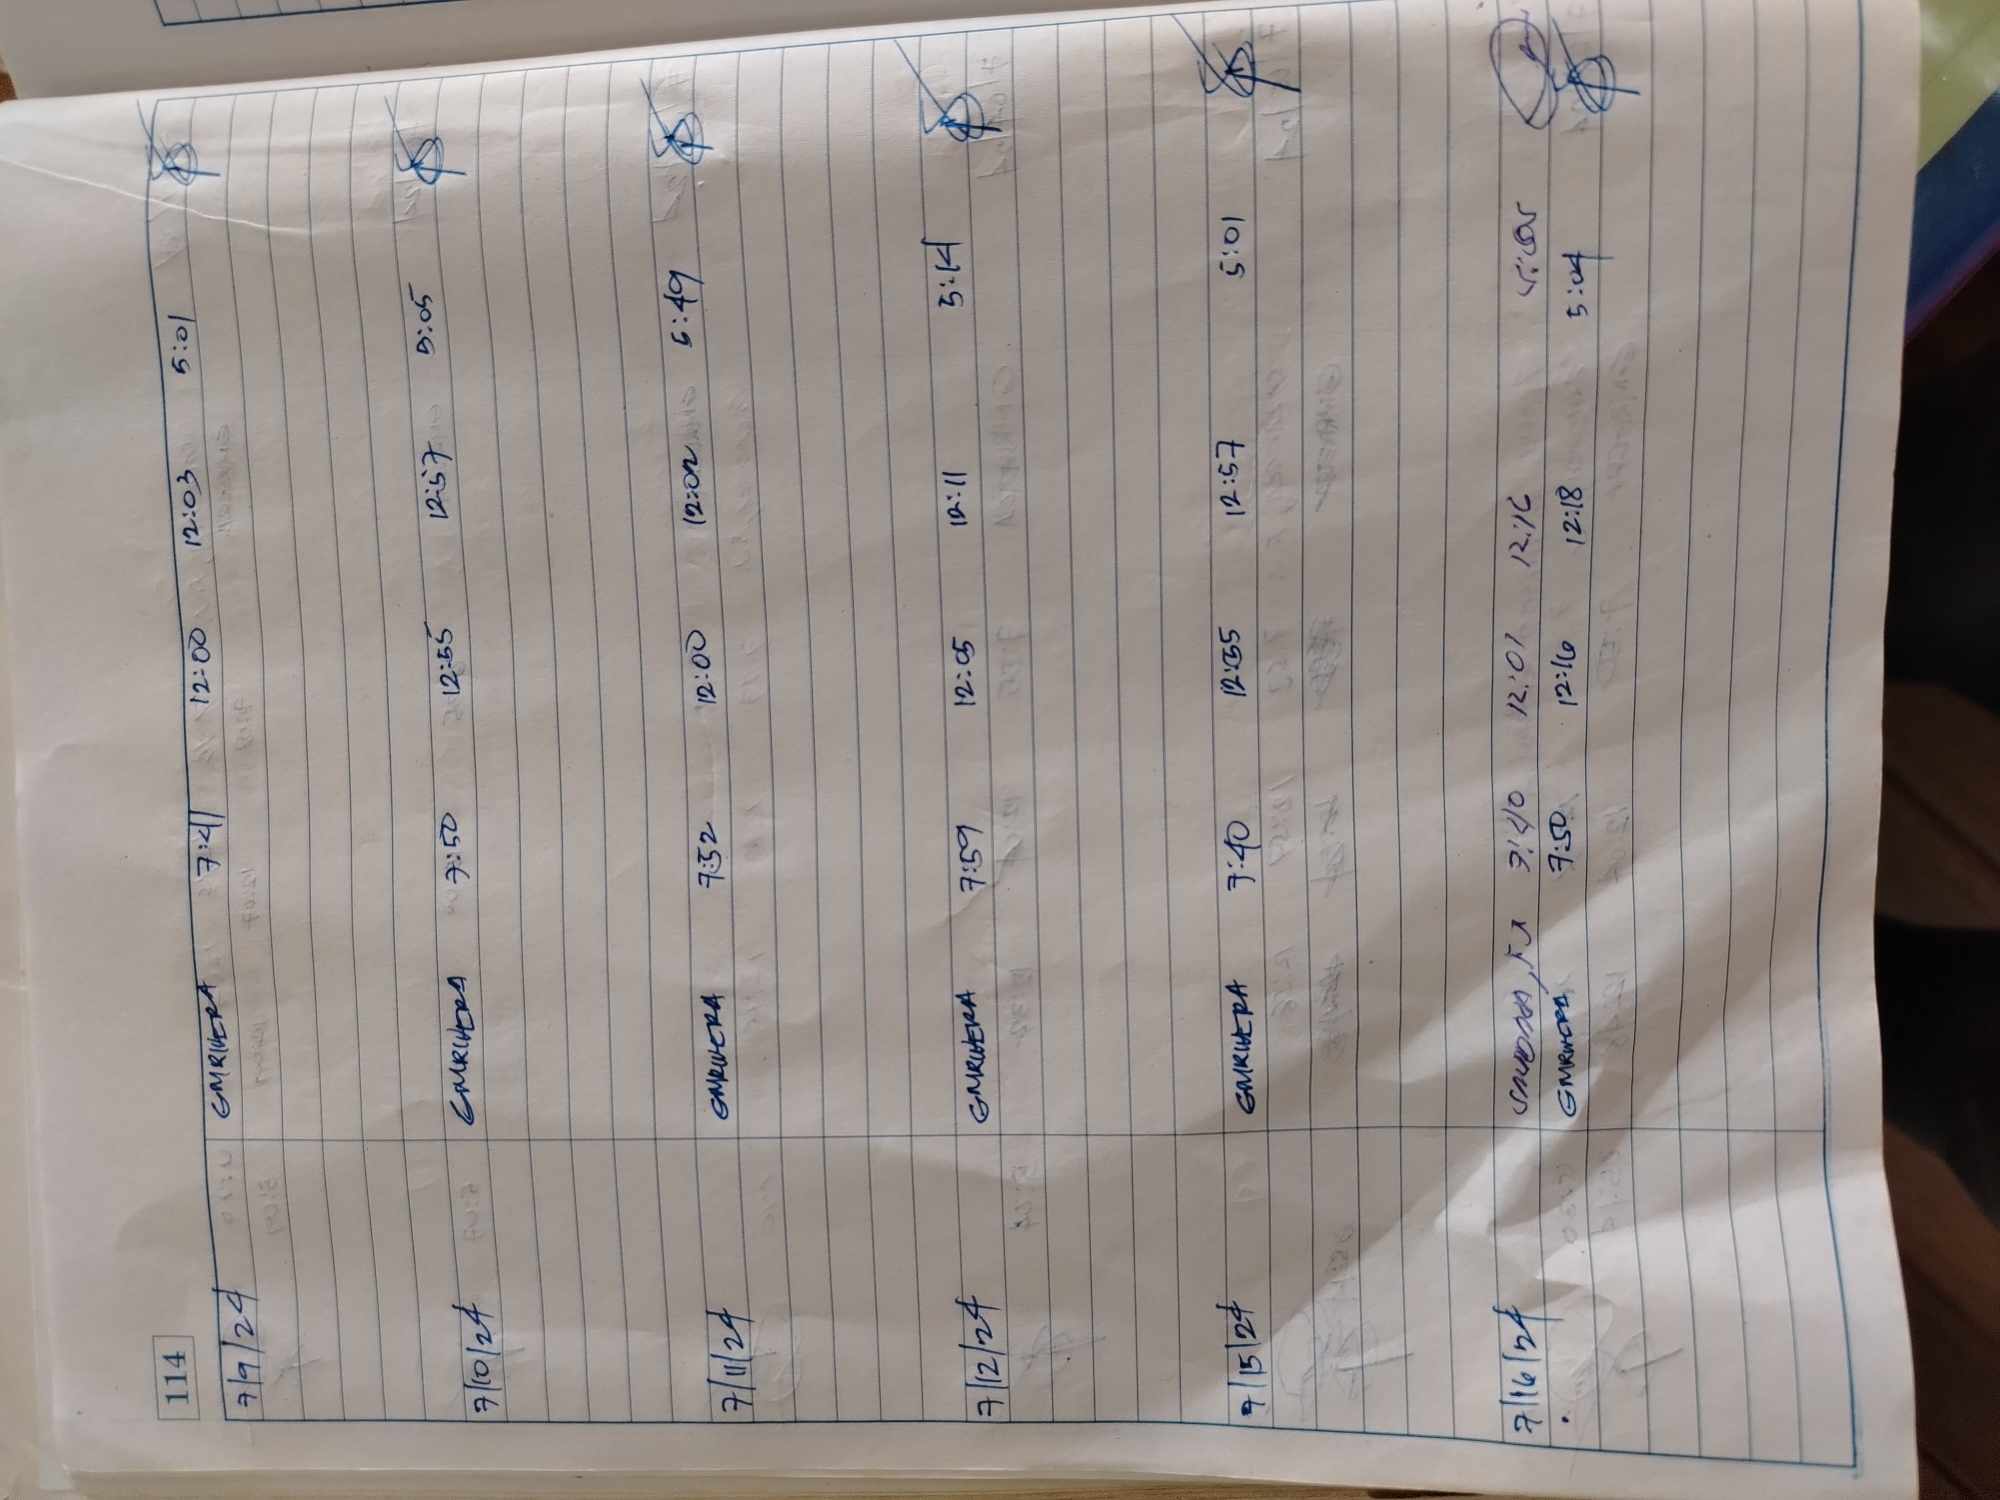 114
7/9/24 GMRIVERA 7:41 12:00 12:03 5:01
7/10/24 GMRIVERA 7:50 12:55 12:57 5:05
7/11/24 GMRIVERA 7:52 12:00 12:02 5:49
7/12/24 GMRIVERA 7:59 12:05 12:11 5:14
7/15/24 GMRIVERA 7:40 12:55 12:57 5:01
7/16/24 7:40 12:01 12:16 5:05
GMRIVERA 7:50 12:16 12:18 5:04